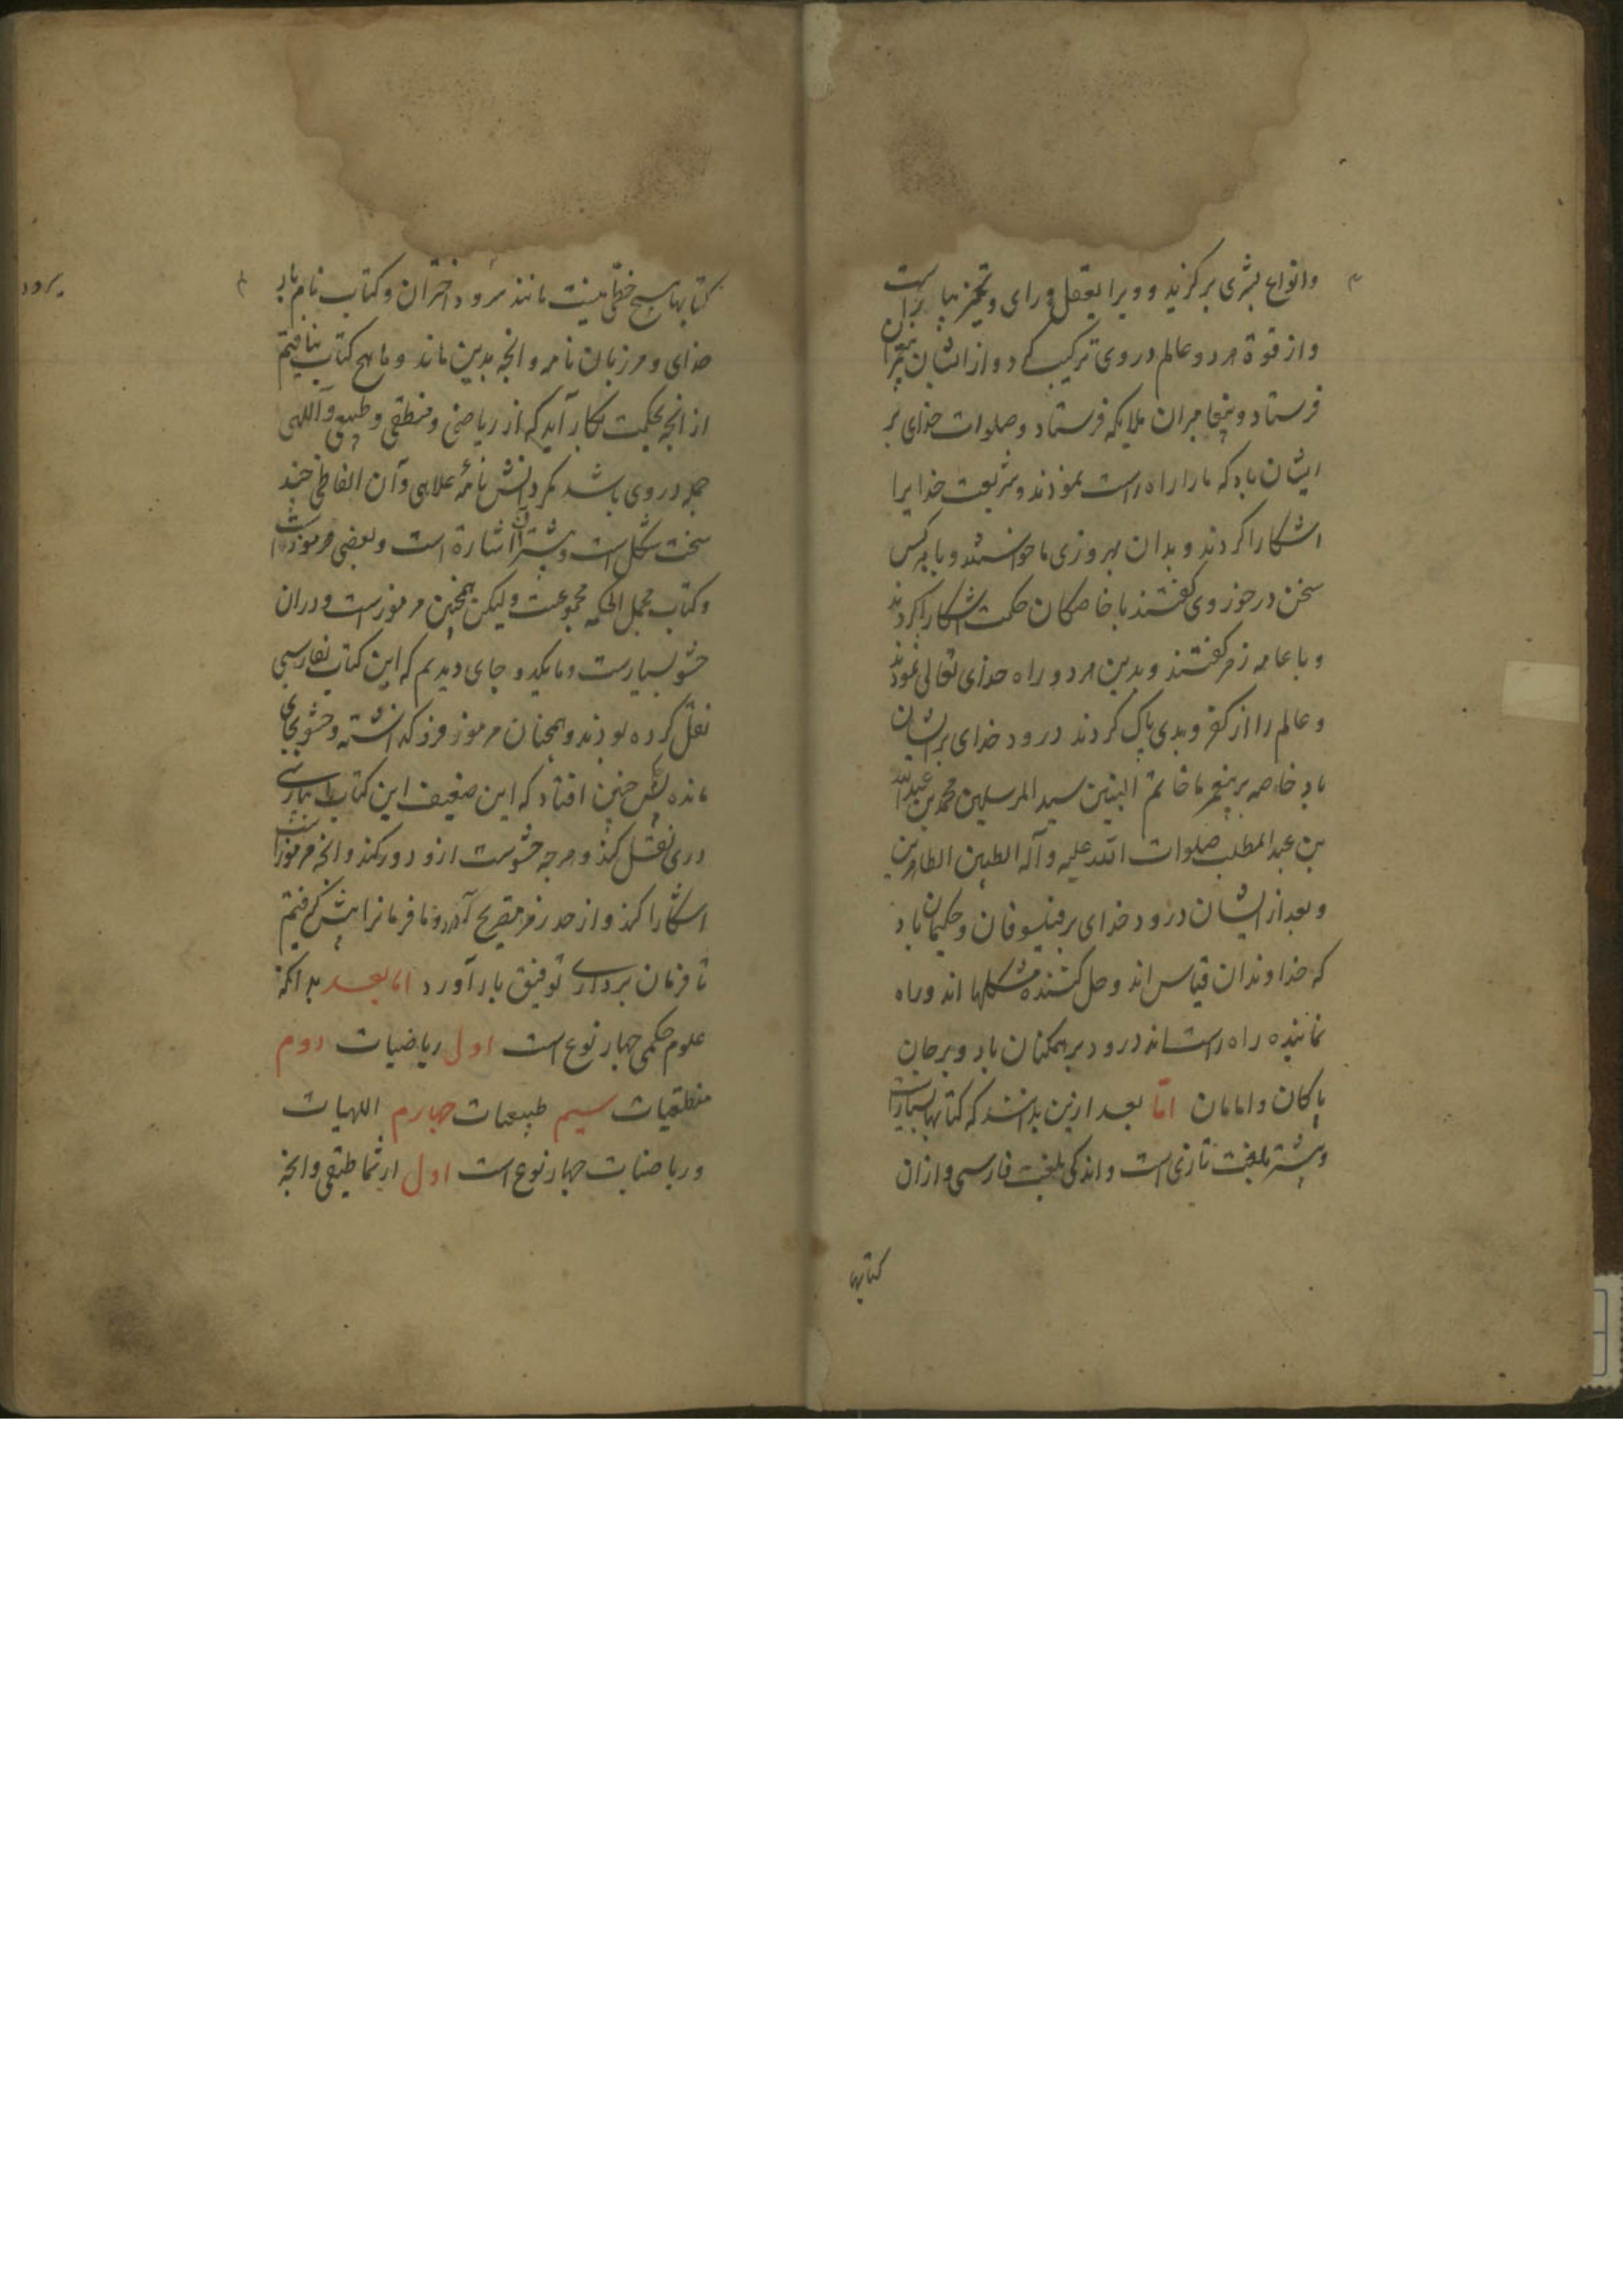 وانواع بشری برکزید و ویرا بعقل و رای و تمیز بیاراست
و از قوة هر دو عالم در وی ترکیب کرد و از ایشان
فرستاد و پیغامبران ملایکه فرستاد و صلوات خذای بر
ایشان باد که ما را راه راست نموذند و شریعت خذایرا
اشکارا کردند و بدان بهروزی ما خواستند و با هر کس
سخن در خور وی کفتند با خاصکان حکمت اشکارا کردند
و با عامه رمز کفتند و بدین هر دو راه خذای تعالی نموذند
و عالم را از کفر و بدی پاک کردند درود خذای بر ایشان
باد خاصه بر پیغمبر ما خاتم النبین سید المرسلین محمد بن عبد الله
بن عبد المطلب صلوات الله علیه و آله الطیبین الطاهرین
و بعد از ایشان درود خدای بر فیلسوفان و حکیمان باد
که خذاوندان قیاس اند و حل کننده مشکلها اند و راه
نماینده راه راست اند درود بر همکنان باد و بر جان
پاکان و امامان امّا بعد ازین بدانند که کتابها بسیارست
و بیشتر بلغت تازی است و اندکی بلغت فارسی و ازان
کتابها
کتابها هیچ خطی نیست مانند سرود اختران و کتاب نام بار
خذای و مرزبان نامه و انچه بدین ماند و ما هیچ کتاب نیافتیم
از انچه بحکمت بکار آید که از ریاضی و منطقی و طبیعی و آللهی
جمله در وی باشد مکر دانش نامهٔ علاهی و آن الفاظی چند
سخت مشکل است و بیشتر آن اشارة است و بعضی مرموزست
و کتاب مجمل الحکمه مجموعست ولیکن همچنین مرموزست و دران
حشو بسیارست و ما بیکدو جای دیدیم که این کتاب بفارسی
نقل کرده بوذند و همچنان مرموز فرو کذاشته و حشو بجای
مانده پس چنین افتاد که این ضعیف این کتاب را بپارسی
دری نقل کند و هر چه حشوست ازو دور کند و انچه مرموزست
اشکارا کند و از حد رمز بتصریح آورد و ما فرمانرا پیش کرفتیم
تا فرمان برداری توفیق بار آورد اما بعد بدانکه
علوم حکمی چهار نوع است اول ریاضیات دوم
منطقیات سیم طبیعیات چهارم اللهیات
و ریاضیات چهار نوع است اول ارثماطیقی و انچه